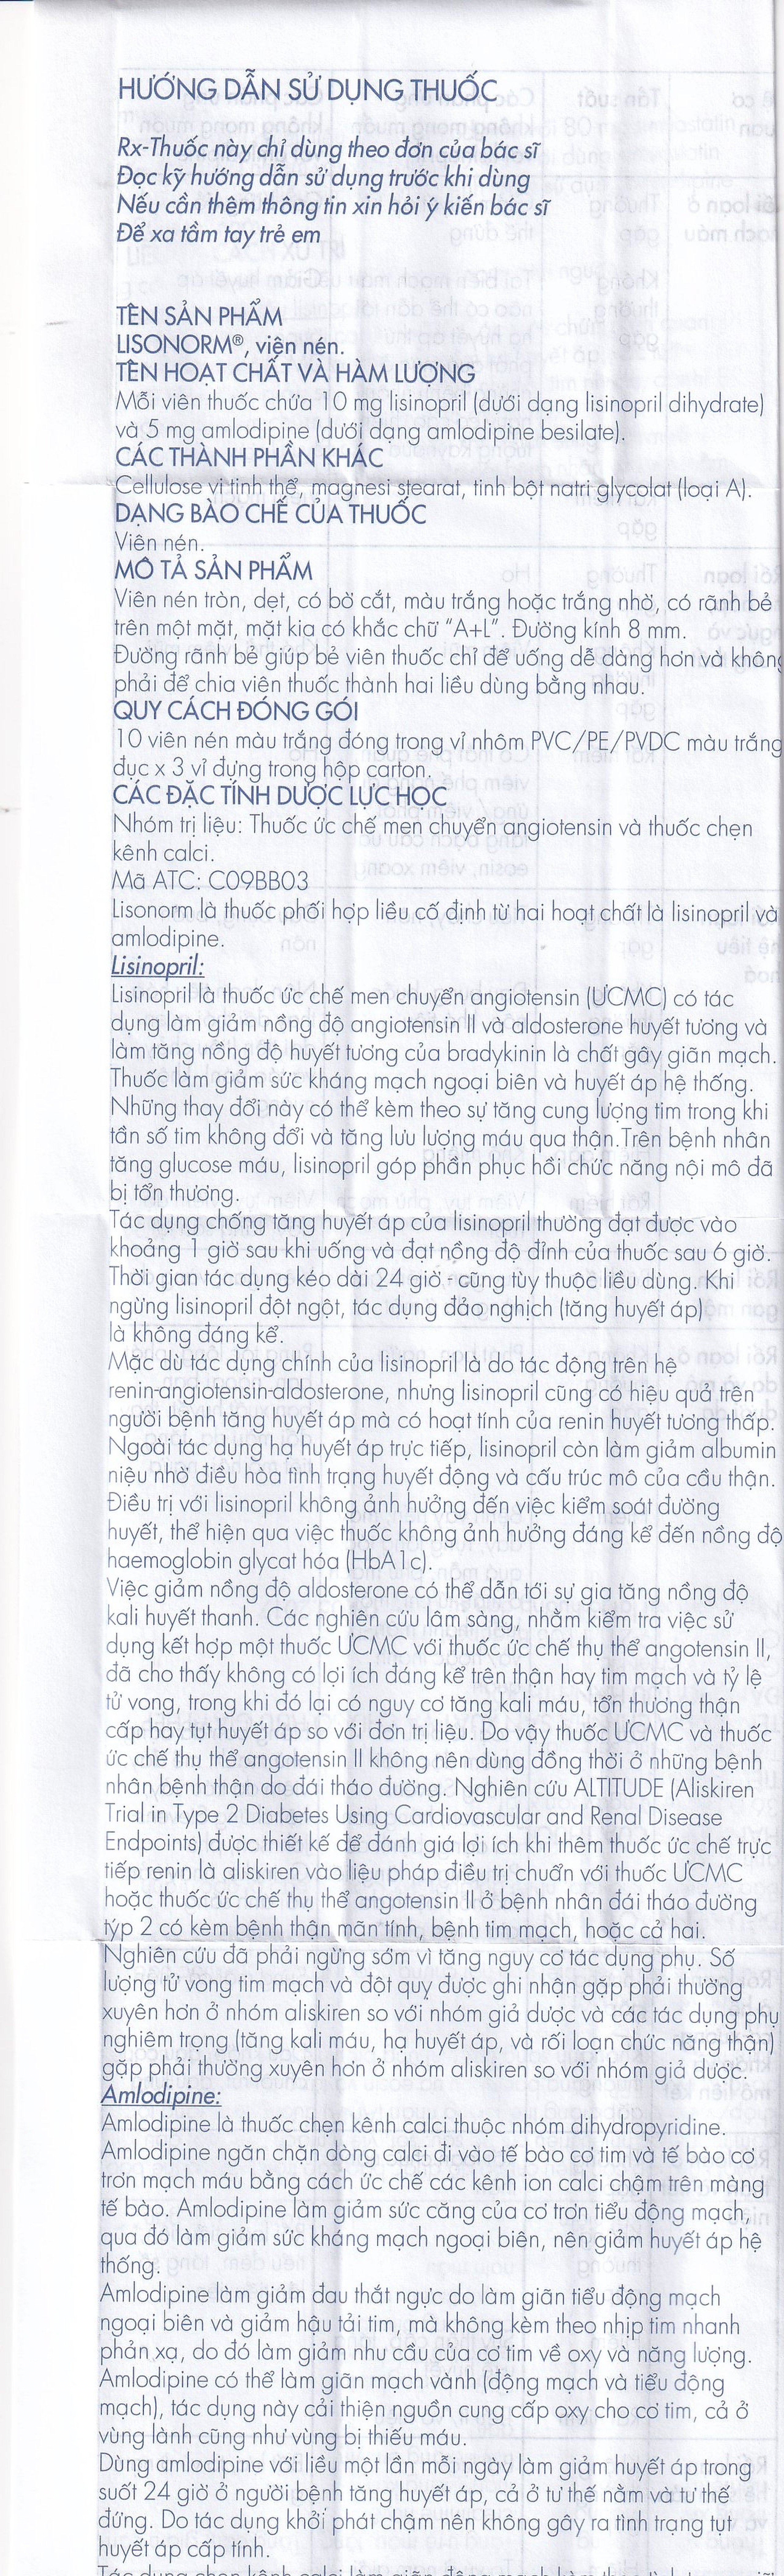 HƯỚNG DẪN SỬ DỤNG THUỐC
Rx-Thuốc này chỉ dùng theo đơn của bác sĩ
Đọc kỹ hướng dẫn sử dụng trước khi dùng
Nếu cần thêm thông tin xin hỏi ý kiến bác sĩ
Để xa tầm tay trẻ em
TÊN SẢN PHẨM
LISONORM®, viên nén.
TÊN HOẠT CHẤT VÀ HÀM LƯỢNG
Mỗi viên thuốc chứa 10 mg lisinopril (dưới dạng lisinopril dihydrate)
và 5 mg amlodipine (dưới dạng amlodipine besilate).
CÁC THÀNH PHẦN KHÁC
Cellulose vi tinh thể, magnesi stearat, tinh bột natri glycolat (loại A).
DẠNG BÀO CHẾ CỦA THUỐC
Viên nén.
MÔ TẢ SẢN PHẨM
Viên nén tròn, dẹt, có bờ cắt, màu trắng hoặc trắng nhờ, có rãnh bẻ
trên một mặt, mặt kia có khắc chữ "A+L". Đường kính 8 mm.
Đường rãnh bẻ giúp bẻ viên thuốc chỉ để uống dễ dàng hơn và không
phải để chia viên thuốc thành hai liều dùng bằng nhau.
QUY CÁCH ĐÓNG GÓI
10 viên nén màu trắng đóng trong vỉ nhôm PVC/PE/PVDC màu trắng
đục x 3 vỉ đựng trong hộp carton.
CÁC ĐẶC TÍNH DƯỢC LỰC HỌC
Nhóm trị liệu: Thuốc ức chế men chuyển angiotensin và thuốc chẹn
kênh calci.
Mã ATC: C09BB03
Lisonorm là thuốc phối hợp liều cố định từ hai hoạt chất là lisinopril và
amlodipine.
Lisinopril:
Lisinopril là thuốc ức chế men chuyển angiotensin (ƯCMC) có tác
dụng làm giảm nồng độ angiotensin II và aldosterone huyết tương và
làm tăng nồng độ huyết tương của bradykinin là chất gây giãn mạch.
Thuốc làm giảm sức kháng mạch ngoại biên và huyết áp hệ thống.
Những thay đổi này có thể kèm theo sự tăng cung lượng tim trong khi
tần số tim không đổi và tăng lưu lượng máu qua thận.Trên bệnh nhân
tăng glucose máu, lisinopril góp phần phục hồi chức năng nội mô đã
bị tổn thương.
Tác dụng chống tăng huyết áp của lisinopril thường đạt được vào
khoảng 1 giờ sau khi uống và đạt nồng độ đỉnh của thuốc sau 6 giờ.
Thời gian tác dụng kéo dài 24 giờ - cũng tùy thuộc liều dùng. Khi
ngừng lisinopril đột ngột, tác dụng đảo nghịch (tăng huyết áp)
là không đáng kể.
Mặc dù tác dụng chính của lisinopril là do tác động trên hệ
renin-angiotensin-aldosterone, nhưng lisinopril cũng có hiệu quả trên
người bệnh tăng huyết áp mà có hoạt tính của renin huyết tương thấp.
Ngoài tác dụng hạ huyết áp trực tiếp, lisinopril còn làm giảm albumin
niệu nhờ điều hòa tình trạng huyết động và cấu trúc mô của cầu thận.
Điều trị với lisinopril không ảnh hưởng đến việc kiểm soát đường
huyết, thể hiện qua việc thuốc không ảnh hưởng đáng kể đến nồng độ
haemoglobin glycat hóa (HbA1c).
Việc giảm nồng độ aldosterone có thể dẫn tới sự gia tăng nồng độ
kali huyết thanh. Các nghiên cứu lâm sàng, nhằm kiểm tra việc sử
dụng kết hợp một thuốc ƯCMC với thuốc ức chế thụ thể angotensin II,
đã cho thấy không có lợi ích đáng kể trên thận hay tim mạch và tỷ lệ
tử vong, trong khi đó lại có nguy cơ tăng kali máu, tổn thương thận
cấp hay tụt huyết áp so với đơn trị liệu. Do vậy thuốc ƯCMC và thuốc
ức chế thụ thể angotensin II không nên dùng đồng thời ở những bệnh
nhân bệnh thận do đái tháo đường. Nghiên cứu ALTITUDE (Aliskiren
Trial in Type 2 Diabetes Using Cardiovascular and Renal Disease
Endpoints) được thiết kế để đánh giá lợi ích khi thêm thuốc ức chế trực
tiếp renin là aliskiren vào liệu pháp điều trị chuẩn với thuốc ƯCMC
hoặc thuốc ức chế thụ thể angotensin II ở bệnh nhân đái tháo đường
týp 2 có kèm bệnh thận mãn tính, bệnh tim mạch, hoặc cả hai.
Nghiên cứu đã phải ngừng sớm vì tăng nguy cơ tác dụng phụ. Số
lượng tử vong tim mạch và đột quỵ được ghi nhận gặp phải thường
xuyên hơn ở nhóm aliskiren so với nhóm giả dược và các tác dụng phụ
nghiêm trọng (tăng kali máu, hạ huyết áp, và rối loạn chức năng thận)
gặp phải thường xuyên hơn ở nhóm aliskiren so với nhóm giả dược.
Amlodipine:
Amlodipine là thuốc chẹn kênh calci thuộc nhóm dihydropyridine.
Amlodipine ngăn chặn dòng calci đi vào tế bào cơ tim và tế bào cơ
trơn mạch máu bằng cách ức chế các kênh ion calci chậm trên màng
tế bào. Amlodipine làm giảm sức căng của cơ trơn tiểu động mạch,
qua đó làm giảm sức kháng mạch ngoại biên, nên giảm huyết áp hệ
thống.
Amlodipine làm giảm đau thắt ngực do làm giãn tiểu động mạch
ngoại biên và giảm hậu tải tim, mà không kèm theo nhịp tim nhanh
phản xạ, do đó làm giảm nhu cầu của cơ tim về oxy và năng lượng.
Amlodipine có thể làm giãn mạch vành (động mạch và tiểu động
mạch), tác dụng này cải thiện nguồn cung cấp oxy cho cơ tim, cả ở
vùng lành cũng như vùng bị thiếu máu.
Dùng amlodipine với liều một lần mỗi ngày làm giảm huyết áp trong
suốt 24 giờ ở người bệnh tăng huyết áp, cả ở tư thế nằm và tư thế
đứng. Do tác dụng khởi phát chậm nên không gây ra tình trạng tụt
huyết áp cấp tính.